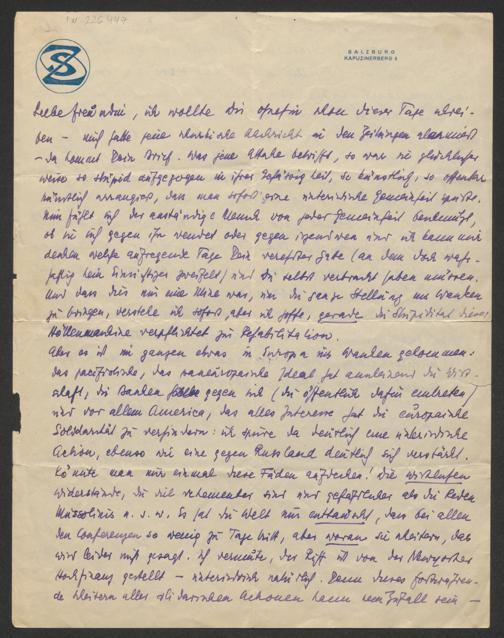 IN 226447
SZ
SALZBURG
KAPUZINERBERG 5
Liebe Freundin, ich wollte Dir ohnehin schon dieser Tage schrei-
ben – mich hatte jene Nachricht in den Zeitungen alarmiert
– da kommt Dein Brief. Was jene Attake betrifft, so war sie glücklicher
weise so stupid aufgezogen in ihrer Gehässigkeit, so künstlich, so offenbar
künstlich arrangiert, dass man sofort eine unterirdische Gemeinheit spürte.
Nun fühlt sich der anständige Mensch von jeder Gemeinheit beschmutzt,
ob sie sich gegen ihn wendet oder gegen irgendwen und ich kann mir
denken welche aufregende Tage Dein verehrter Gatte (an dem doch wahr-
haftig kein Einsichtiger zweifelt) und Du selbst verbracht haben müssen.
Und dass dies nur eine Mine war, um die ganze Stellung ins Wanken
zu bringen, verstehe ich sofort, aber ich hoffe, gerade die Stupidität dieser
Höllenmaschine verpflichtet zur Rehabilitation.
Aber es ist im ganzen etwas in Europa ins Wanken gekommen:
das pacifistische, das paneuropäische Ideal hat anscheinend die Wirt-
schaft, die Banken gegen sich (die öffentlich dafür eintreten)
und vor allem America, das alles Interesse hat die europäische
Solidarität zu verhindern: ich spüre da deutlich eine unterirdische
Action, ebenso wie eine gegen Russland deutlich sich verstärkt.
Könnte man nur einmal diese Fäden aufdecken! Die wirklichen
Widerstände, die viel vehementer sind und gefährlicher als die Reden
Mussolinis u. s. w. Es hat die Welt nur enttäuscht, dass bei allen
den Conferenzen so wenig zu Tage tritt, aber woran sie scheitern, das
wird leider nicht gesagt. Ich vermute, das Gift ist von der Newyorker
Hochfinanz gestellt – unterirdisch natürlich. Denn dieses fortwähren-
de Scheitern aller solidarischen Actionen kann kein Zufall sein –